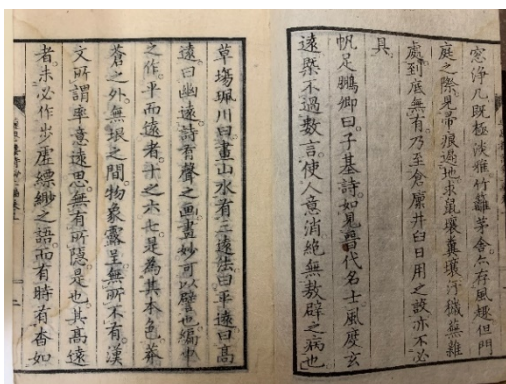 窓淨几既極淡雅竹籬茅舍亦存風趣但門
庭之際見帚痕遍地求鼠壤糞壤汙穢蕪雜
處到底無有乃至倉廩井臼日用之設亦不必
具
帆足鵬卿曰子基詩如見晉代名士風度玄
遠槩不過數言使人意消絶無敖辟之病也
草塲珮川曰畫山水有三遠法曰平遠曰高
遠曰幽遠詩有聲之画畫妙可以譬也編中
之作平而遠者十之六七是為其本色莽
蒼之外無垠之間物象露呈無所不有漢
文所謂率意遠思無有所隠是也其高遠
者未必作步虛縹緲之語而有時有杳如